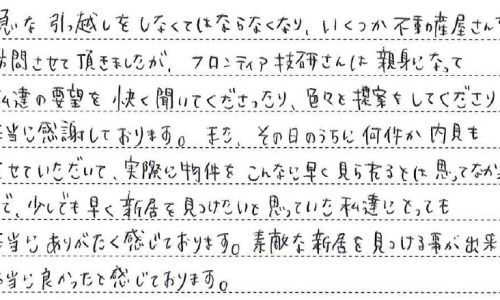 急な引っ越しをしなくてはならなくなり、いくつか不動産屋さん
訪問させて頂きましたが、フロンティア技研さんは親身になって
私達の要望を快く聞いてくださったり、色々と提案をしてくださり
本当に感謝しております。また、その日のうちに何件か内見も
させていただいて、実際に物件をこんなに早く見られるとは思ってなか
で、少しでも早く新居を見つけたいと思っていた私達にとっても
本当にありがたく感じております。素敵な新居を見つける事が出来
本当に良かったと感じております。